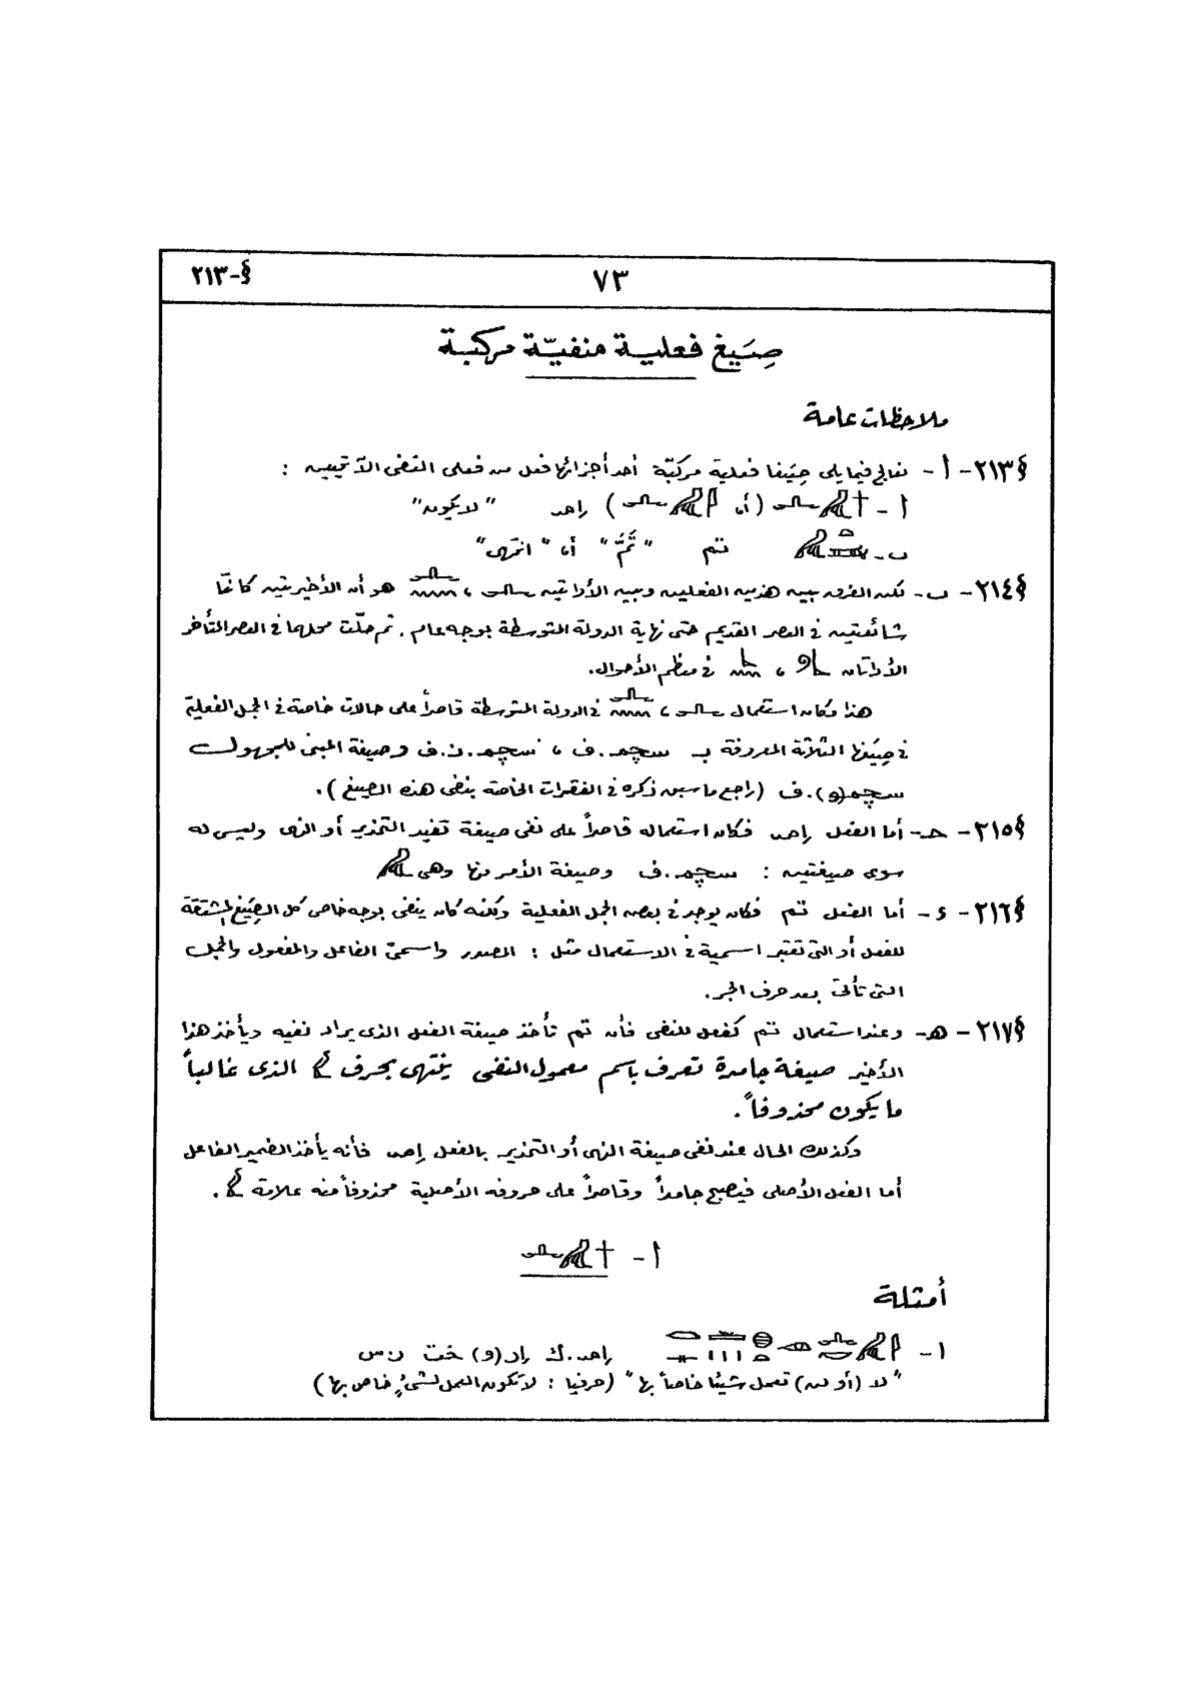 §-٢١٣
٧٣
صِيَغ فعلية منفيّة مركبة
ملاحظات عامة
§٢١٣- أ- نعالج فيما يلى صِيَغا فعلية مركبّة أحد أجزائها فعل من فعلى النفى الآتيين :
أ - (أو ) إمى "لا يكون"
ب- تم "تَمَّ" أو "انتهى"
§٢١٤- ب- لكن الفرق بين هذين الفعلين وبين الأداتين ، هو أن الأخيرتين كانتا
شائعتين فى العصر القديم حتى نهاية الدولة المتوسطة بوجه عام . ثم حلّت محلهما فى العصر المتأخر
الأداتان ، فى معظم الأحوال.
هذا وكان استعمال ، فى الدولة المتوسطة قاصراً على حالات خاصة فى الجمل الفعلية
فى صِيَغها الثلاثة المعروفة بـ سچم.ف ، سچم.ن.ف وصيغة المبنى للمجهول
سچم(و).ف (راجع ما سبق ذكره فى الفقرات الخاصة بنفى هذه الصيغ ).
§٢١٥- حـ- أما الفعل إمى فكان استعماله قاصراً على نفى صيغة تفيد التحذير أو النهى وليس له
سوى صيغتين : سچم.ف وصيغة الأمر منها وهى
§٢١٦- ء- أما الفعل تم فكان يوجد فى بعض الجمل الفعلية ولكنه كان ينفى بوجه خاص كل الصِيَغ المشتقة
للفعل أو التى تعتبر اسمية فى الاستعمال مثل : المصدر واسمىّ الفاعل والمفعول والجمل
التى تأتى بعد حرف الجر.
§٢١٧- هـ- وعند استعمال تم كفعل للنفى فأن تم تأخذ صيغة الفعل الذى يراد نفيه ويأخذ هذا
الأخير صيغة جامدة تعرف باسم معمول النفى ينتهى بحرف الذى غالباً
ما يكون محذوفاً.
وكذلك الحال عند نفى صيغة النهى أو التحذير بالفعل إمى فأنه يأخذ الضمير الفاعل
أما الفعل الأصلى فيصبح جامداً وقاصراً على حروفه الأصلية محذوفاً منه علامة .
أ -
أمثلة
١- إمى.ك إر(و) خت ن.س
"لا (أو لن) تعمل شيئا خاصاً بها" (حرفيا : لا تكون العمل لشىءٍ خاص بها)